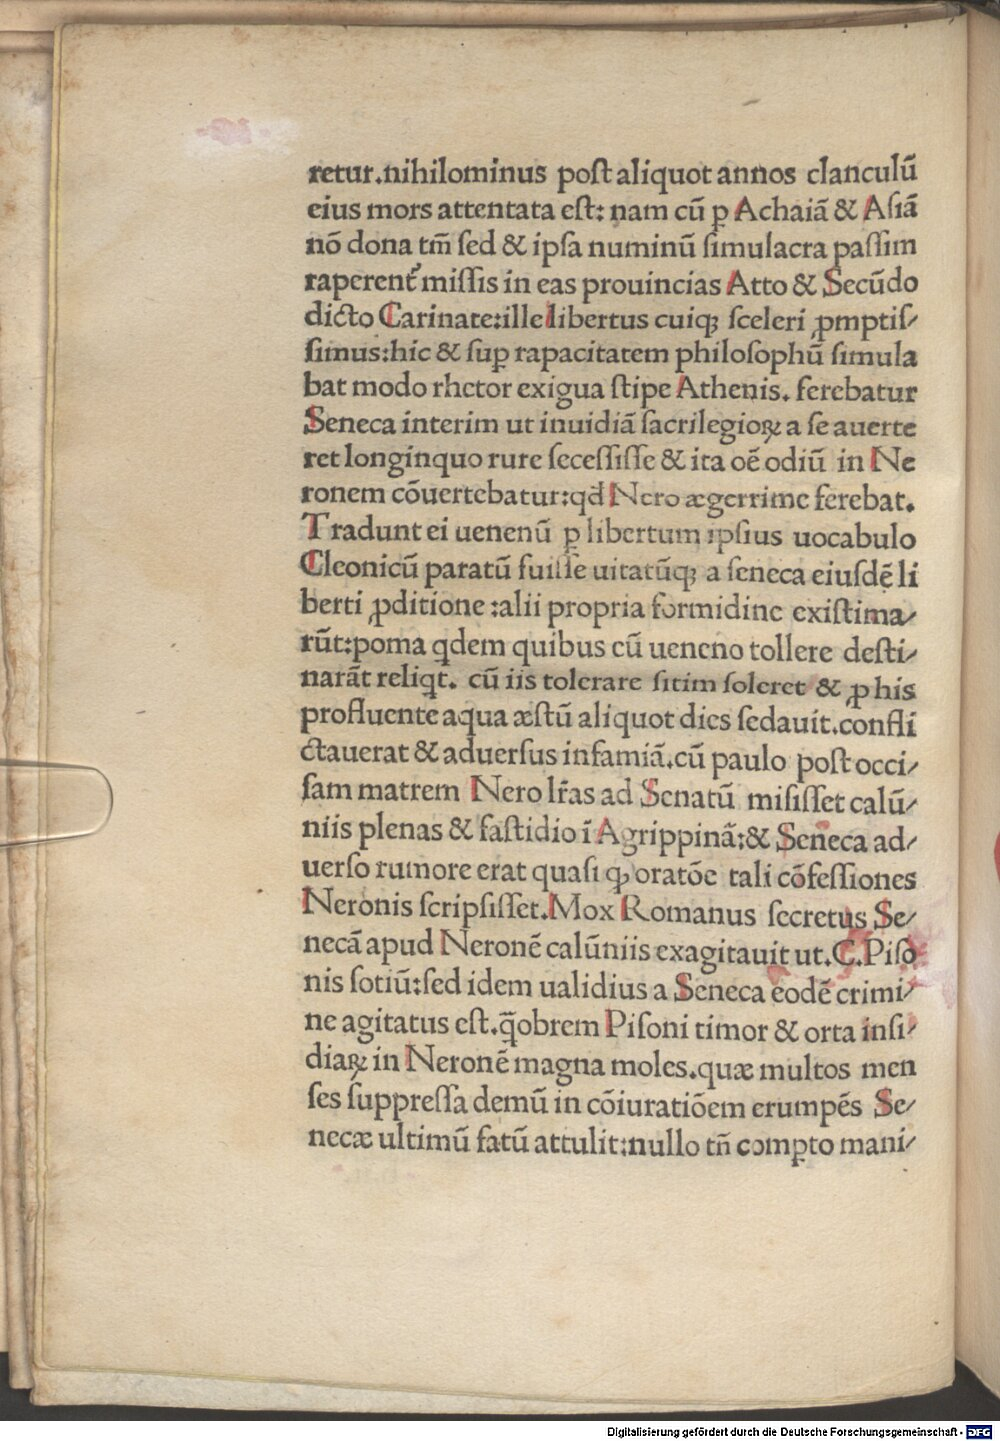 retur.nihilominus poſt aliquot annos clanculū
eius mors attentata eſt: nam cū ꝑ Achaiā & Aſiā
nō dona tm̄ ſed & ipſa numinū ſimulacra paſſim
raperent᷑ miſſis in eas prouincias Atto & Secūdo
dicto Carinate:ille libertus cuiqꝫ ſceleri ꝓmptiſ/
ſimus:hic & ſuꝑ rapacitatem philoſophū ſimula
bat modo rhetor exigua ſtipe Athenis. ferebatur
Seneca interim ut inuidiā ſacrilegioꝝ a ſe auerte
ret longinquo rure ſeceſſiſſe & ita oē odiū in Ne
ronem cōuertebatur:qd Nero ægerrime ferebat.
Tradunt ei uenenū ꝑ libertum ipſius uocabulo
Cleonicū paratū fuiſſe uitatūqꝫ a ſeneca eiuſdē li
berti ꝓditione :alii propria formidine exiſtima/
rūt:poma qdem quibus cū ueneno tollere deſti/
narāt reliqt. cū iis tolerare ſitim ſoleret & ꝓ his
profluente aqua æſtū aliquot dies ſedauit.confli
ctauerat & aduerſus infamiā.cū paulo poſt occi/
ſam matrem Nero lr̄as ad Senatū miſiſſet calū/
niis plenas & faſtidio ī Agrippinā:& Seneca ad/
uerſo rumore erat quaſi ꝙ oratōe tali cōfeſſiones
Neronis ſcripſiſſet.Mox Romanus ſecretus Se/
necā apud Neronē calūniis exagitauit ut.C.Piſo
nis ſotiū:ſed idem ualidius a Seneca eodē crimi/
ne agitatus eſt.q̄obrem Piſoni timor & orta inſi/
diaꝝ in Neronē magna moles.quæ multos men
ſes ſuppreſſa demū in cōiuratiōem erumpēs Se/
necæ ultimū fatū attulit:nullo tn̄ comꝑto mani/
Digitalisierung gefördert durch die Deutsche Forschungsgemeinschaft - DFG